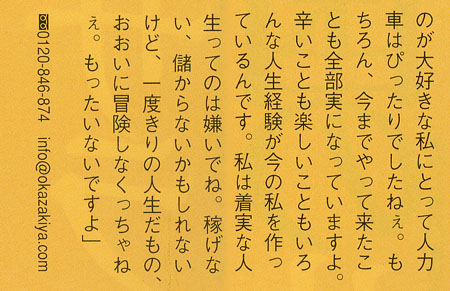 のが大好きな私にとって人力
車はぴったりでしたねぇ。も
ちろん、今までやって来たこ
とも全部実になっていますよ。
辛いことも楽しいこともいろ
んな人生経験が今の私を作っ
ているんです。私は着実な人
生ってのは嫌いでね。稼げな
い、儲からないかもしれない
けど、一度きりの人生だもの、
おおいに冒険しなくっちゃね
ぇ。もったいないですよ」
0120-846-874 info@okazakiya.com